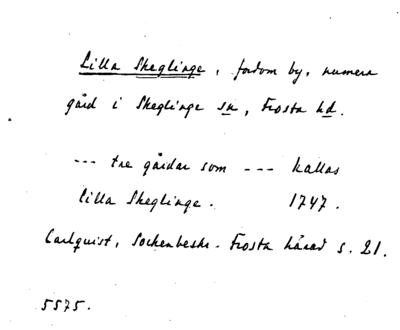 Lilla Skeglinge, fordom by, numera
gård i Skeglinge sn, Frosta hd.
--- tre gårdar som --- kallas
lilla Skeglinge. 1747.
Carlquist, Sockenbeskr. Frosta härad s. 21.
5575.